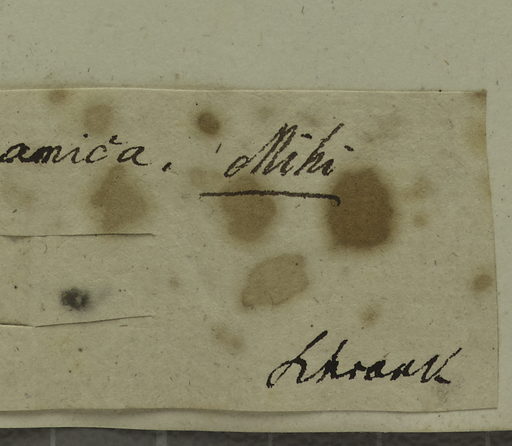 amica, Mihi
Schrank